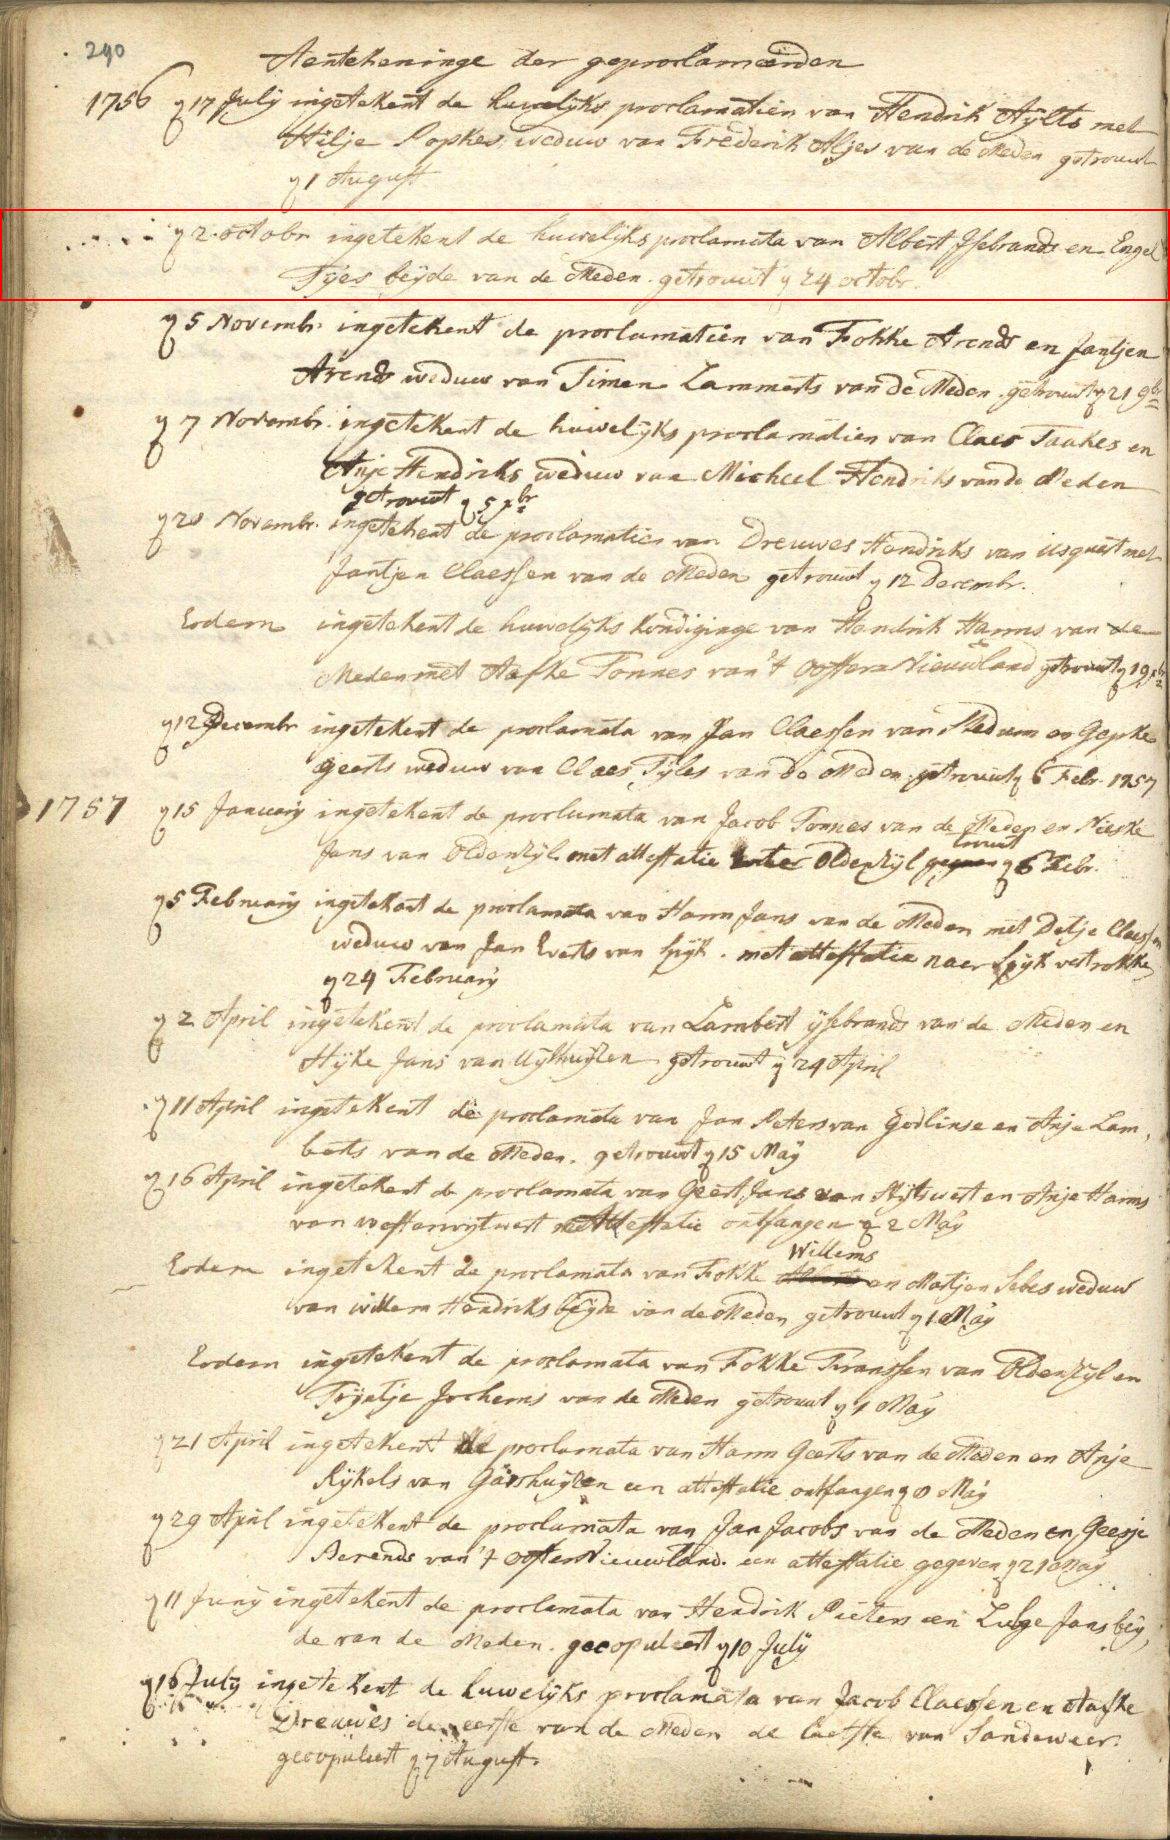 290
Aentekeninge der geproclameerden
1756 ꝗ 17 July ingetekent de huwelijks proclamatien van Hendrik Aijlts met
Hilje Popkes weduw van Frederik Aljes van de Meden getrouwt
ꝗ 1 August
ꝗ 2 octobr ingetekent de huwelijks proclamata van Albert Ysebrands en Engel
Tijes beijde van de Meden. getrouwt ꝗ 24 octobr.
ꝗ 5 Novembr. ingetekent de proclamatien van Fokke Arends en Jantjen
Arends weduw van Timen Lammerts van de Meden. getrouwt ꝗ 21 9br
ꝗ 7 Novembr. ingetekent de huwelijks proclamatien van Claes Taukes en
Anje Hendriks weduw van Micheel Hendriks van de Meden
getrouwt ꝗ 5 xbr
ꝗ 20 Novembr. ingetekent de proclamatien van Dreuwes Hendriks van usquert met
Jantjen Claessen van de Meden getrouwt ꝗ 12 Decembr.
Eodem ingetekent de huwelijks kondiginge van Hendrik Harms van de
Meden met Aefke Tonnes van 't Ooster Nieuwland getrouwt ꝗ 19 xbr
ꝗ 12 Decembr ingetekent de proclamata van Jan Claessen van Stedum en Gepke
Geerts weduw van Claes Tijles van de Meden. getrouwt ꝗ 6 Febr. 1757
1757 ꝗ 15 January ingetekent de proclamata van Jacob Tonnes van de Meden en Nieske
Jans van Oldenzijl. met attestatie Oldenzijl trouwt ꝗ 6 Febr.
ꝗ 5 February ingetekent de proclamata van Harm Jans van de Meden met Detje Claessen
weduw van Jan Everts van Spijk. met attestatie naer Spijk vertrokken
ꝗ 24 February
ꝗ 2 April ingetekent de proclamata van Lambert ijsebrands van de Meden en
Hijke Jans van Uijthuijzen getrouwt ꝗ 24 April
ꝗ 11 April ingetekent de proclamata van Jan Peters van Godlinse en Anje Lam,
berts van de Meden. getrouwt ꝗ 15 Maij
ꝗ 16 April ingetekent de proclamata van Geert Jans van Stijtswert en Anje Harms
van westerwijtwert Attestatie ontfangen ꝗ 2 Maij
Willems
Eodem ingetekent de proclamata van Fokke en Martjen Sebes weduw
van willem Hendriks beijde van de Meden getrouwt ꝗ 1 Maij
Eodem ingetekent de proclamata van Fokke Franssen van Oldenzijl en
Trijntje Jochems van de Meden getrouwt ꝗ 1 Maij
ꝗ 21 April ingetekent de proclamata van Harm Geerts van de Meden en Anje
Rijkels van Garshuijzen een attestatie ontfangen ꝗ 8 Maij
ꝗ 29 April ingetekent de proclamata van Jan Jacobs van de Meden en Geesje
Berends van 't Ooster Nieuwland. een attestatie gegeven ꝗ 21 Maij
ꝗ 11 Junij ingetekent de proclamata van Hendrik Pieters en Lubge Jans beij,
de van de Meden. gecopuleert ꝗ 10 Julij
ꝗ 16 July ingetekent de huwelijks proclamata van Jacob Claessen en Aafke
Dreuwes de eerste van de Meden de laetste van Sandeweer.
gecopuleert ꝗ 7 August.